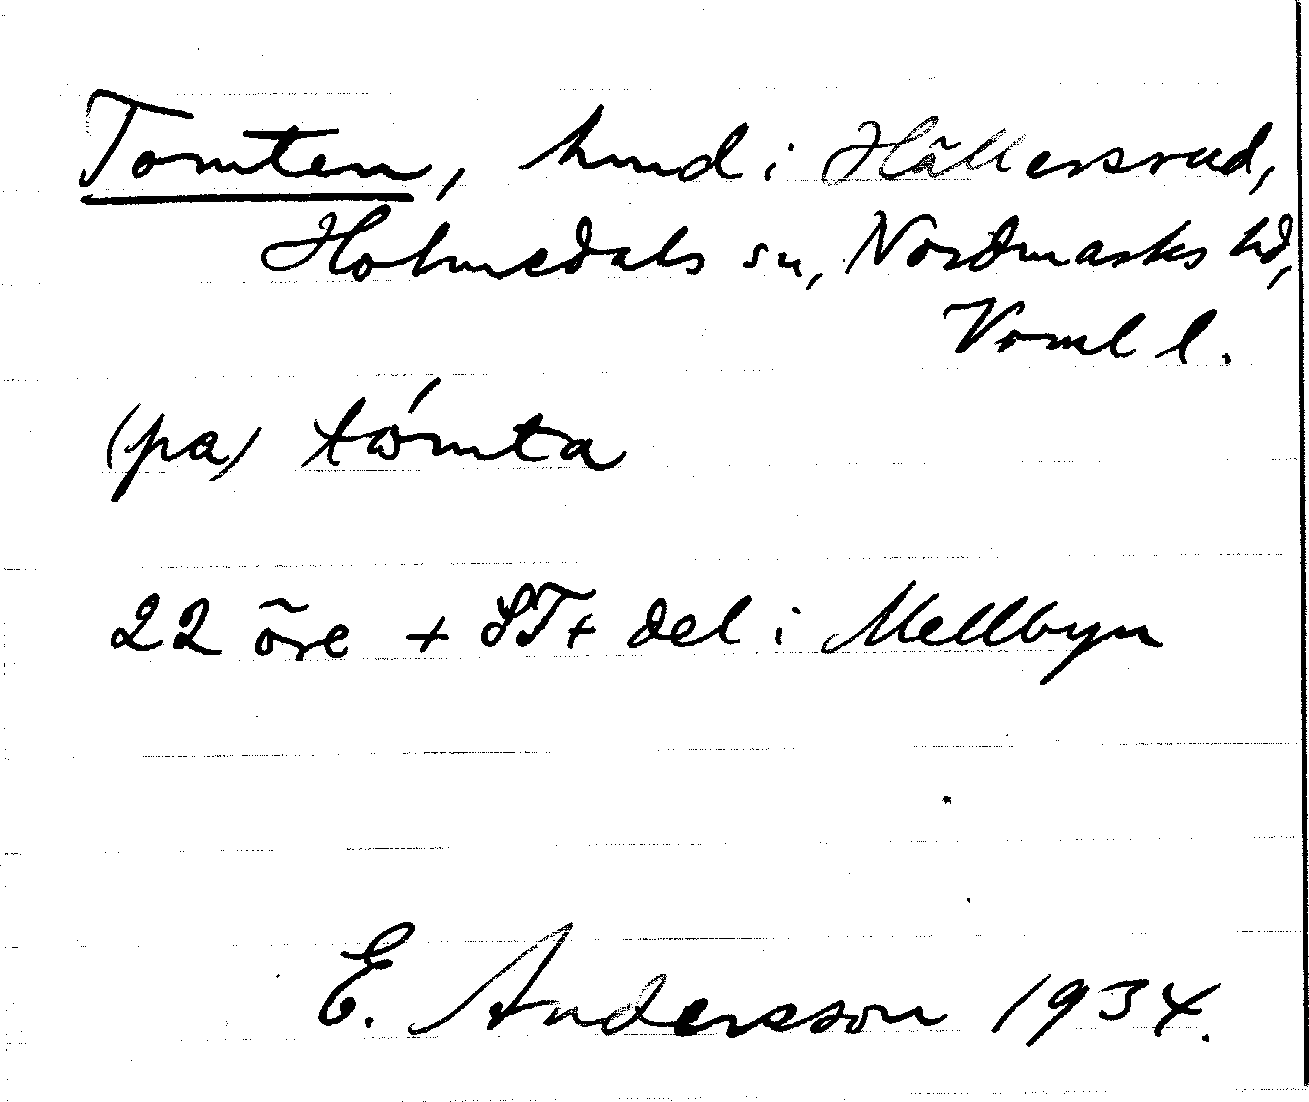 Tomten, hmd i Hällersrud,
Holmedals sn, Nordmarks hd,
Vrml l.
(pa) tómta
22 öre + ST + del i Mellbyn
E. Andersson 1934.